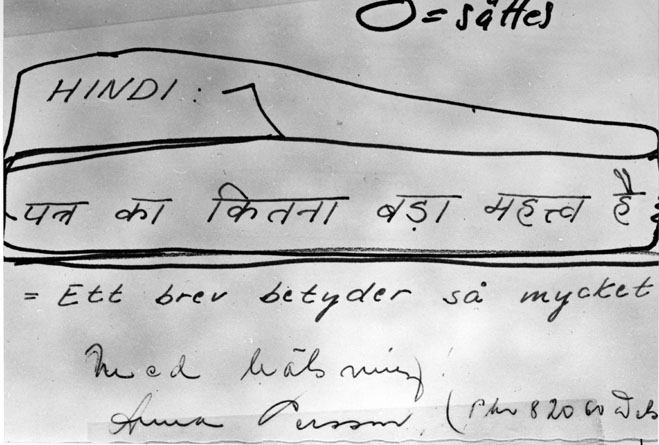 O = sättes
HINDI:
पत्र का कितना बड़ा महत्त्व है
= Ett brev betyder så mycket
Med hälsning!
Anna Persson (